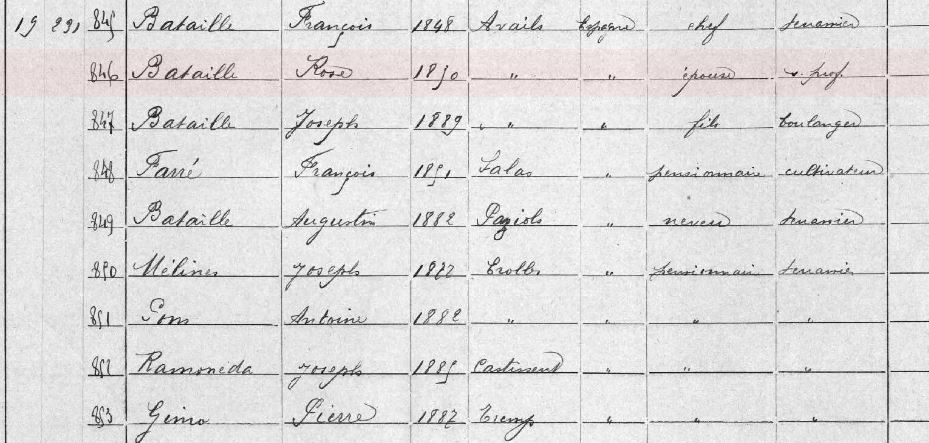 19 291 845 Bataille François 1848 Avails Espagne chef terrassier
846 Bataille Rose 1850 " " épouse s. prof
847 Bataille Joseph 1889 " " fils boulanger
848 Farré François 1851 Salas " pensionnaire cultivateur
849 Bataille Augustin 1882 Paziols " neveu terrassier
850 Mélines Joseph 1882 " pensionnaire terrassier
851 Pons Antoine 1882 " " " "
852 Ramoneda Joseph 1885 Castissent " " "
853 Gimo Pierre 1882 Tremp " " "